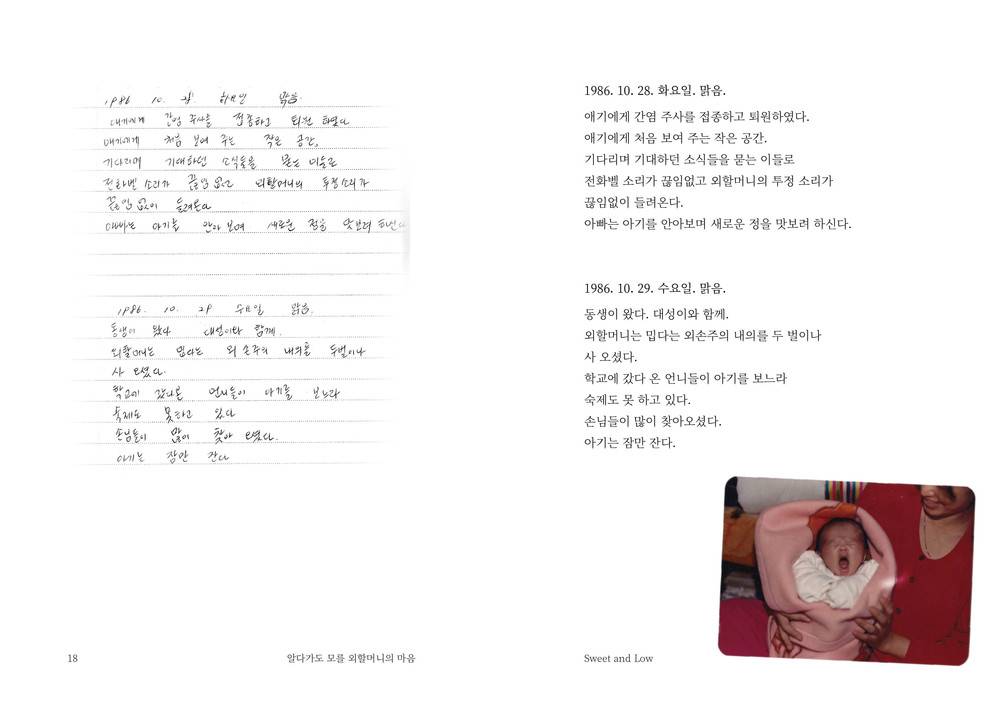 1986. 10. 28. 화요일 맑음.
애기에게 간염 주사를 접종하고 퇴원 하였다
애기에게 처음 보여 주는 작은 공간,
기다리며 기대하던 소식들을 묻는 이들로
전화벨 소리가 끊임 없고 외할머니의 투정소리가
끊임 없이 들려온다
아빠는 아기를 안아 보며 새로운 정을 맛보려 하신다
1986. 10. 29 수요일 맑음.
동생이 왔다 대성이와 함께.
외할머니는 밉다는 외손주의 내의를 두벌이나
사 오셨다.
학교에 갔다온 언니들이 아기를 보느라
숙제도 못하고 있다
손님들이 많이 찾아 오셨다.
아기는 잠만 잔다
18
알다가도 모를 외할머니의 마음
1986. 10. 28. 화요일. 맑음.
애기에게 간염 주사를 접종하고 퇴원하였다.
애기에게 처음 보여 주는 작은 공간.
기다리며 기대하던 소식들을 묻는 이들로
전화벨 소리가 끊임없고 외할머니의 투정 소리가
끊임없이 들려온다.
아빠는 아기를 안아보며 새로운 정을 맛보려 하신다.
1986. 10. 29. 수요일. 맑음.
동생이 왔다. 대성이와 함께.
외할머니는 밉다는 외손주의 내의를 두 벌이나
사 오셨다.
학교에 갔다 온 언니들이 아기를 보느라
숙제도 못 하고 있다.
손님들이 많이 찾아오셨다.
아기는 잠만 잔다.
Sweet and Low